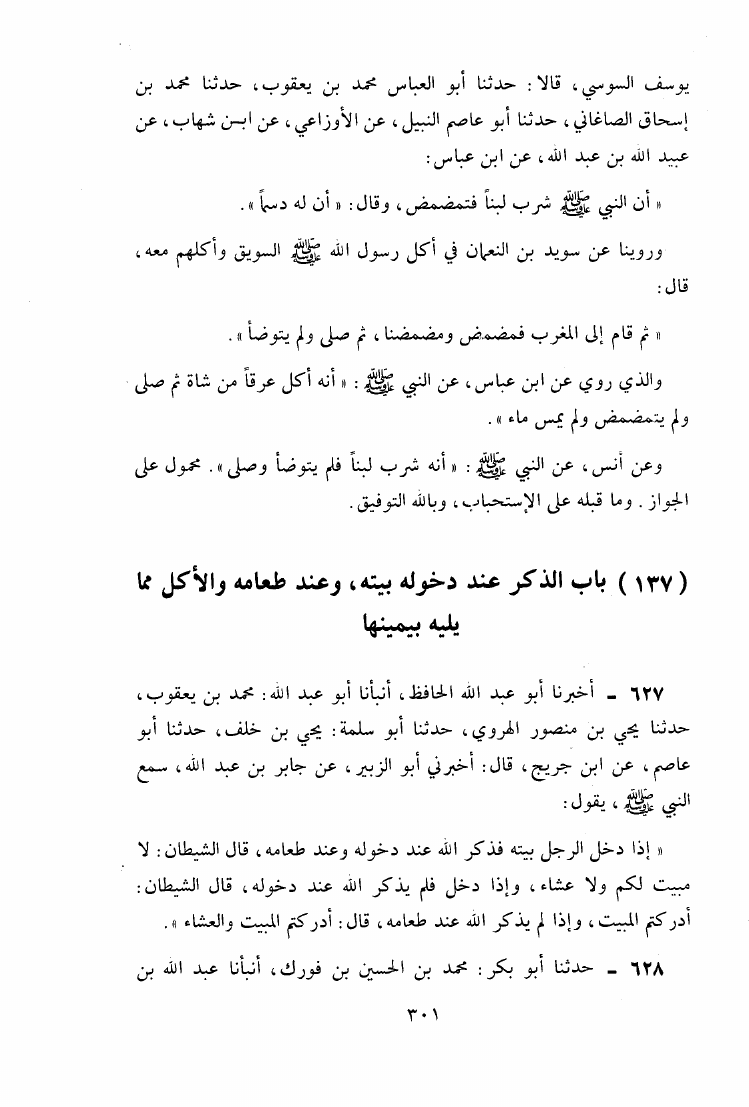 يوسف السوسي، قالا: حدثنا أبو العباس محمد بن يعقوب، حدثنا محمد بن
إسحاق الصاغاني، حدثنا أبو عاصم النبيل، عن الأوزاعي، عن ابن شهاب، عن
عبيد الله بن عبد الله، عن ابن عباس:
« أن النبي ﷺ شرب لبناً فتمضمض، وقال: « أن له دسماً ».
وروينا عن سويد بن النعمان في أكل رسول الله ﷺ السويق وأكلهم معه،
قال:
« ثم قام إلى المغرب فمضمض ومضمضنا، ثم صلى ولم يتوضأ ».
والذي روي عن ابن عباس، عن النبي ﷺ: « أنه أكل عرقاً من شاة ثم صلى
ولم يتمضمض ولم يمس ماء ».
وعن أنس، عن النبي ﷺ: « أنه شرب لبناً فلم يتوضأ وصلى ». محمول على
الجواز. وما قبله على الإستحباب، وبالله التوفيق.
(١٣٧) باب الذكر عند دخوله بيته، وعند طعامه والأكل مما
يليه بيمينها
٦٢٧ - أخبرنا أبو عبد الله الحافظ، أنبأنا أبو عبد الله: محمد بن يعقوب،
حدثنا يحي بن منصور الهروي، حدثنا أبو سلمة: يحي بن خلف، حدثنا أبو
عاصم، عن ابن جريج، قال: أخبرني أبو الزبير، عن جابر بن عبد الله، سمع
النبي ﷺ، يقول:
« إذا دخل الرجل بيته فذكر الله عند دخوله وعند طعامه، قال الشيطان: لا
مبيت لكم ولا عشاء، وإذا دخل فلم يذكر الله عند دخوله، قال الشيطان:
أدركتم المبيت، وإذا لم يذكر الله عند طعامه، قال: أدركتم المبيت والعشاء ».
٦٢٨ - حدثنا أبو بكر: محمد بن الحسين بن فورك، أنبأنا عبد الله بن
٣٠١